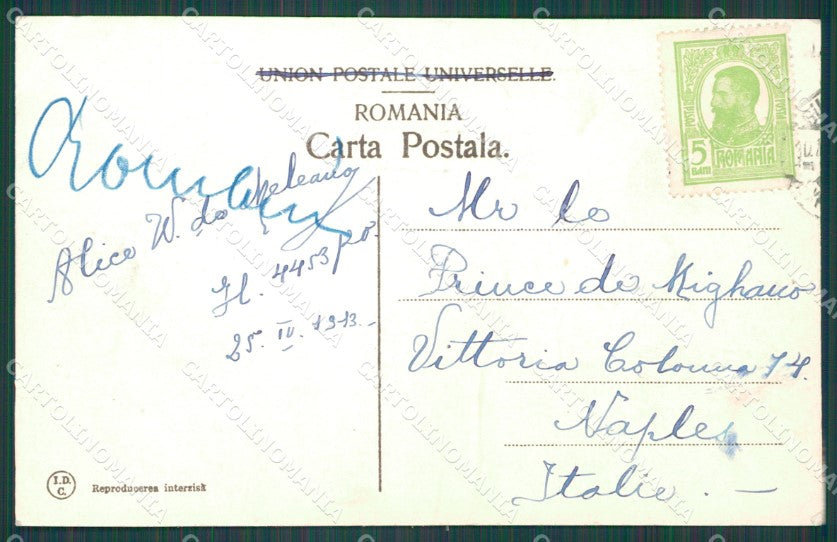 UNION POSTALE UNIVERSELLE.
ROMANIA
Carta Postala.
5
BANI
ROMANIA
Alice W. de
Jl. 4453
25. IV. 1913.
Mr le
Prince de Mighano
Vittoria Colonna 14.
Naples
Italie. -
I.D.
C.
Reproducerea interzisă
CARTOLINOMANIA